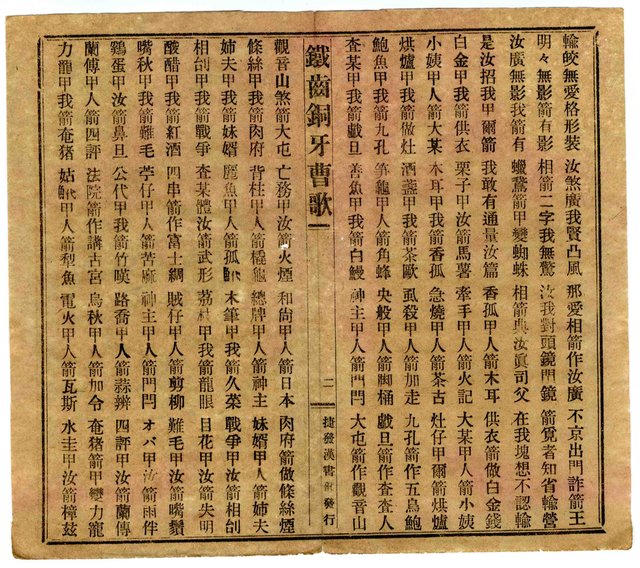 輸皎無愛格形裝 汝煞廣我賢凸風 那愛相箭作汝廣 不京出門詐箭王
明々無影箭有影 相箭二字我無驚 汝我對頭鏡門鏡 箭寬者知省輸營
汝廣無影我箭有 蠟鶿箭甲變蜘蛛 相箭典汝眞司父 在我塊想不認輸
是汝招我甲爾箭 我敢有通量汝篇 香孤甲人箭木耳 供衣箭做白金錢
白金甲我箭供衣 栗子甲汝箭馬薯 牽手甲人箭火記 大某甲人箭小姨
小姨甲人箭大某 木耳甲我箭香孤 急燒甲人箭茶古 灶仔甲爾箭烘爐
烘爐甲我箭做灶 酒盞甲我箭茶歐 虱殺甲人箭加走 九孔箭作五鳥鮑
鮑魚甲我箭九孔 笋龜甲人箭角蜂 央般甲人箭脚桶 戯旦箭作查查人
查某甲我箭戯旦 善魚甲我箭白鰻 神主甲人箭門閂 大屯箭作觀音山
鐵齒銅牙曹歌 二 捷發漢書部發行
觀音山煞箭大屯 亡務甲汝箭火煙 和尙甲人箭日本 肉府箭做條絲煙
條絲甲我箭肉府 背柱甲人箭橇龜 總牌甲人箭神主 妹婿甲人箭姉夫
姉夫甲我箭妹婿 鹿魚甲人箭孤 木筆甲我箭久菜 戰爭甲汝箭相刣
相刣甲我箭戰爭 查某體汝箭武形 荔枝甲我箭龍眼 目花甲汝箭失明
酸醋甲我箭紅酒 四串箭作富士綢 賊仔甲人箭剪柳 難毛甲汝箭嘴鬚
嘴秋甲我箭難毛 苧仔甲人箭苦麻 神主甲人箭門閂 オバ甲汝箭雨伴
鷄蛋甲汝箭鼻旦 公代甲我箭竹嘆 路喬甲人箭蒜辨 四評甲汝箭蘭傳
蘭傳甲人箭四評 法院箭作講古宮 鳥秋甲人箭加令 奄猪箭甲變力龍
力龍甲我箭奄猪 姑甲人箭犁魚 電火甲人箭瓦斯 水圭甲汝箭樟玆